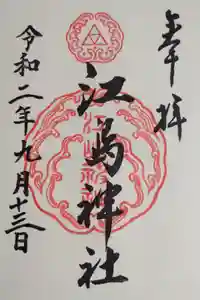 奉拝
江島神社
令和二年九月十三日